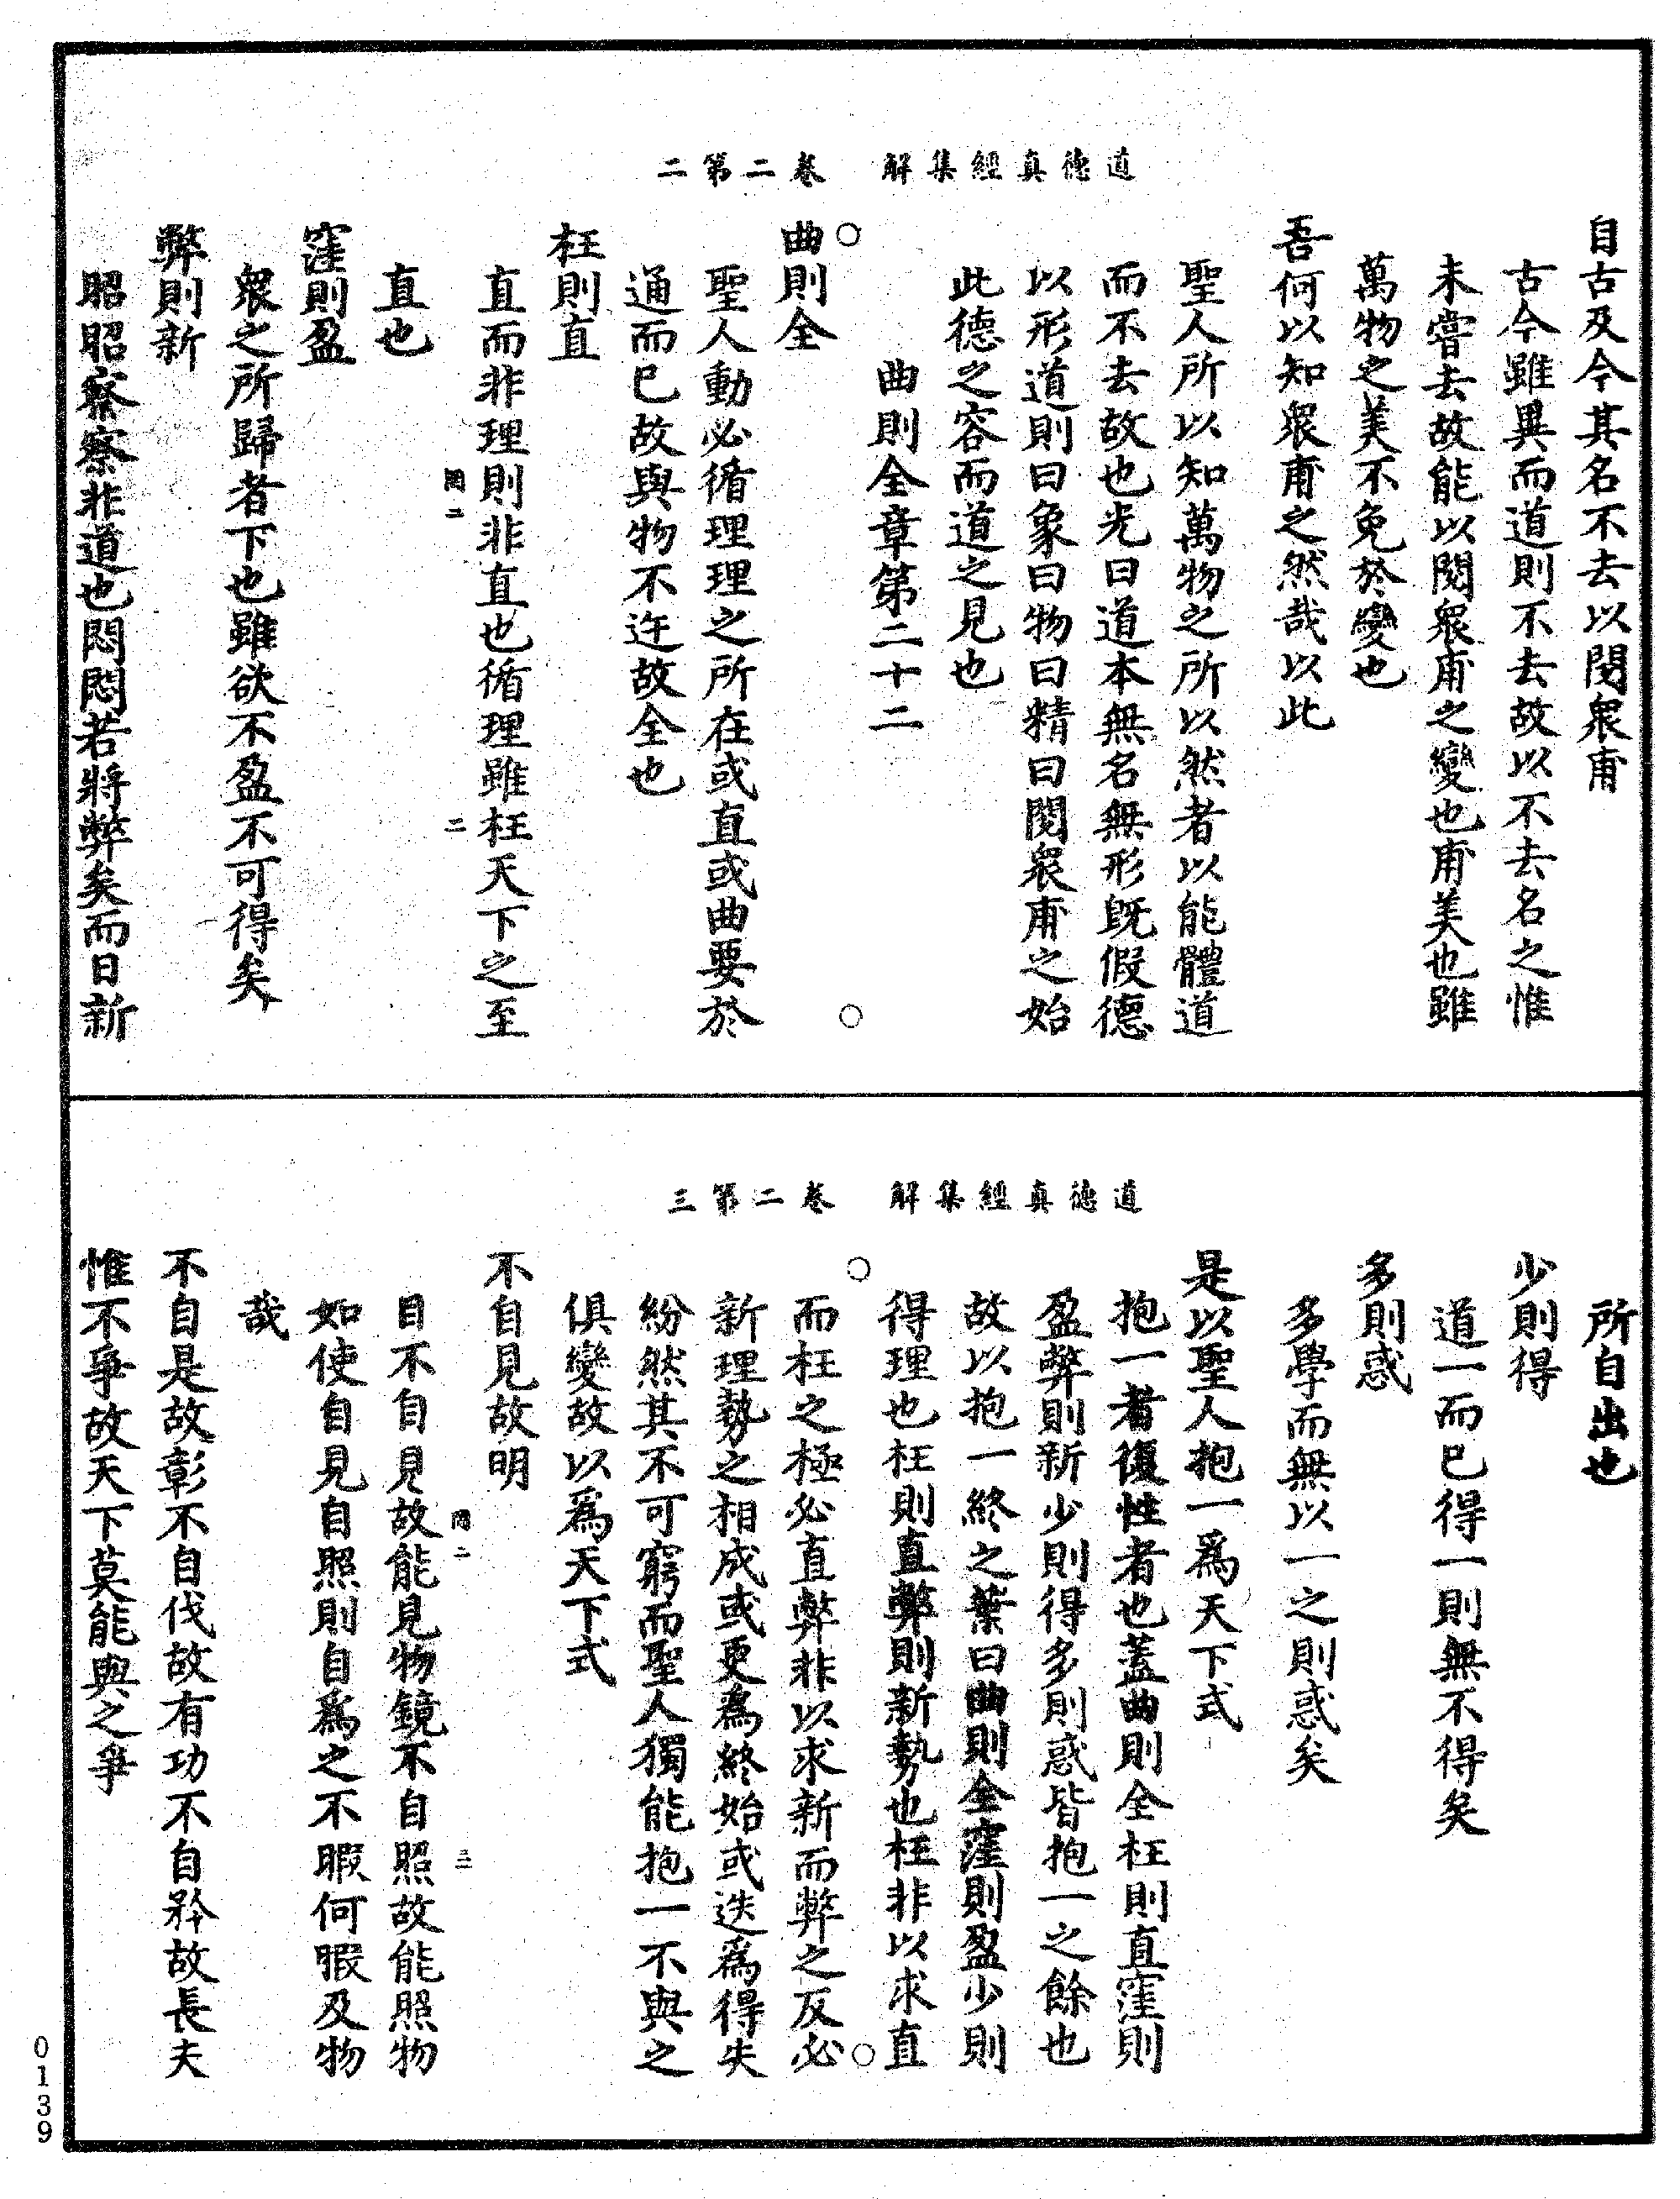 道德真經集解　卷二第二
自古及今其名不去以閱衆甫
古今雖異而道則不去故以不去名之惟
未嘗去故能以閱衆甫之變也甫美也雖
萬物之美不免於變也
吾何以知衆甫之然哉以此
聖人所以知萬物之所以然者以能體道
而不去故也光曰道本無名無形旣假德
以形道則曰象曰物曰精曰閱衆甫之始
此德之容而道之見也
曲則全章第二十二
曲則全
聖人動必循理理之所在或直或曲要於
通而已故與物不迕故全也
枉則直
直而非理則非直也循理雖枉天下之至
直也
窪則盈
衆之所歸者下也雖欲不盈不可得矣
弊則新
昭昭察察非道也悶悶若將弊矣而日新
道德真經集解　卷二第三
所自出也
少則得
道一而已得一則無不得矣
多則惑
多學而無以一之則惑矣
是以聖人抱一爲天下式
抱一者復性者也蓋曲則全枉則直窪則
盈弊則新少則得多則惑皆抱一之餘也
故以抱一終之葉曰曲則全窪則盈少則
得理也枉則直弊則新勢也枉非以求直
而枉之極必直弊非以求新而弊之反必
新理勢之相成或更爲終始或迭爲得失
紛然其不可窮而聖人獨能抱一不與之
俱變故以爲天下式
不自見故明
目不自見故能見物鏡不自照故能照物
如使自見自照則自爲之不暇何暇及物
哉
不自是故彰不自伐故有功不自矜故長夫
惟不爭故天下莫能與之爭
0139